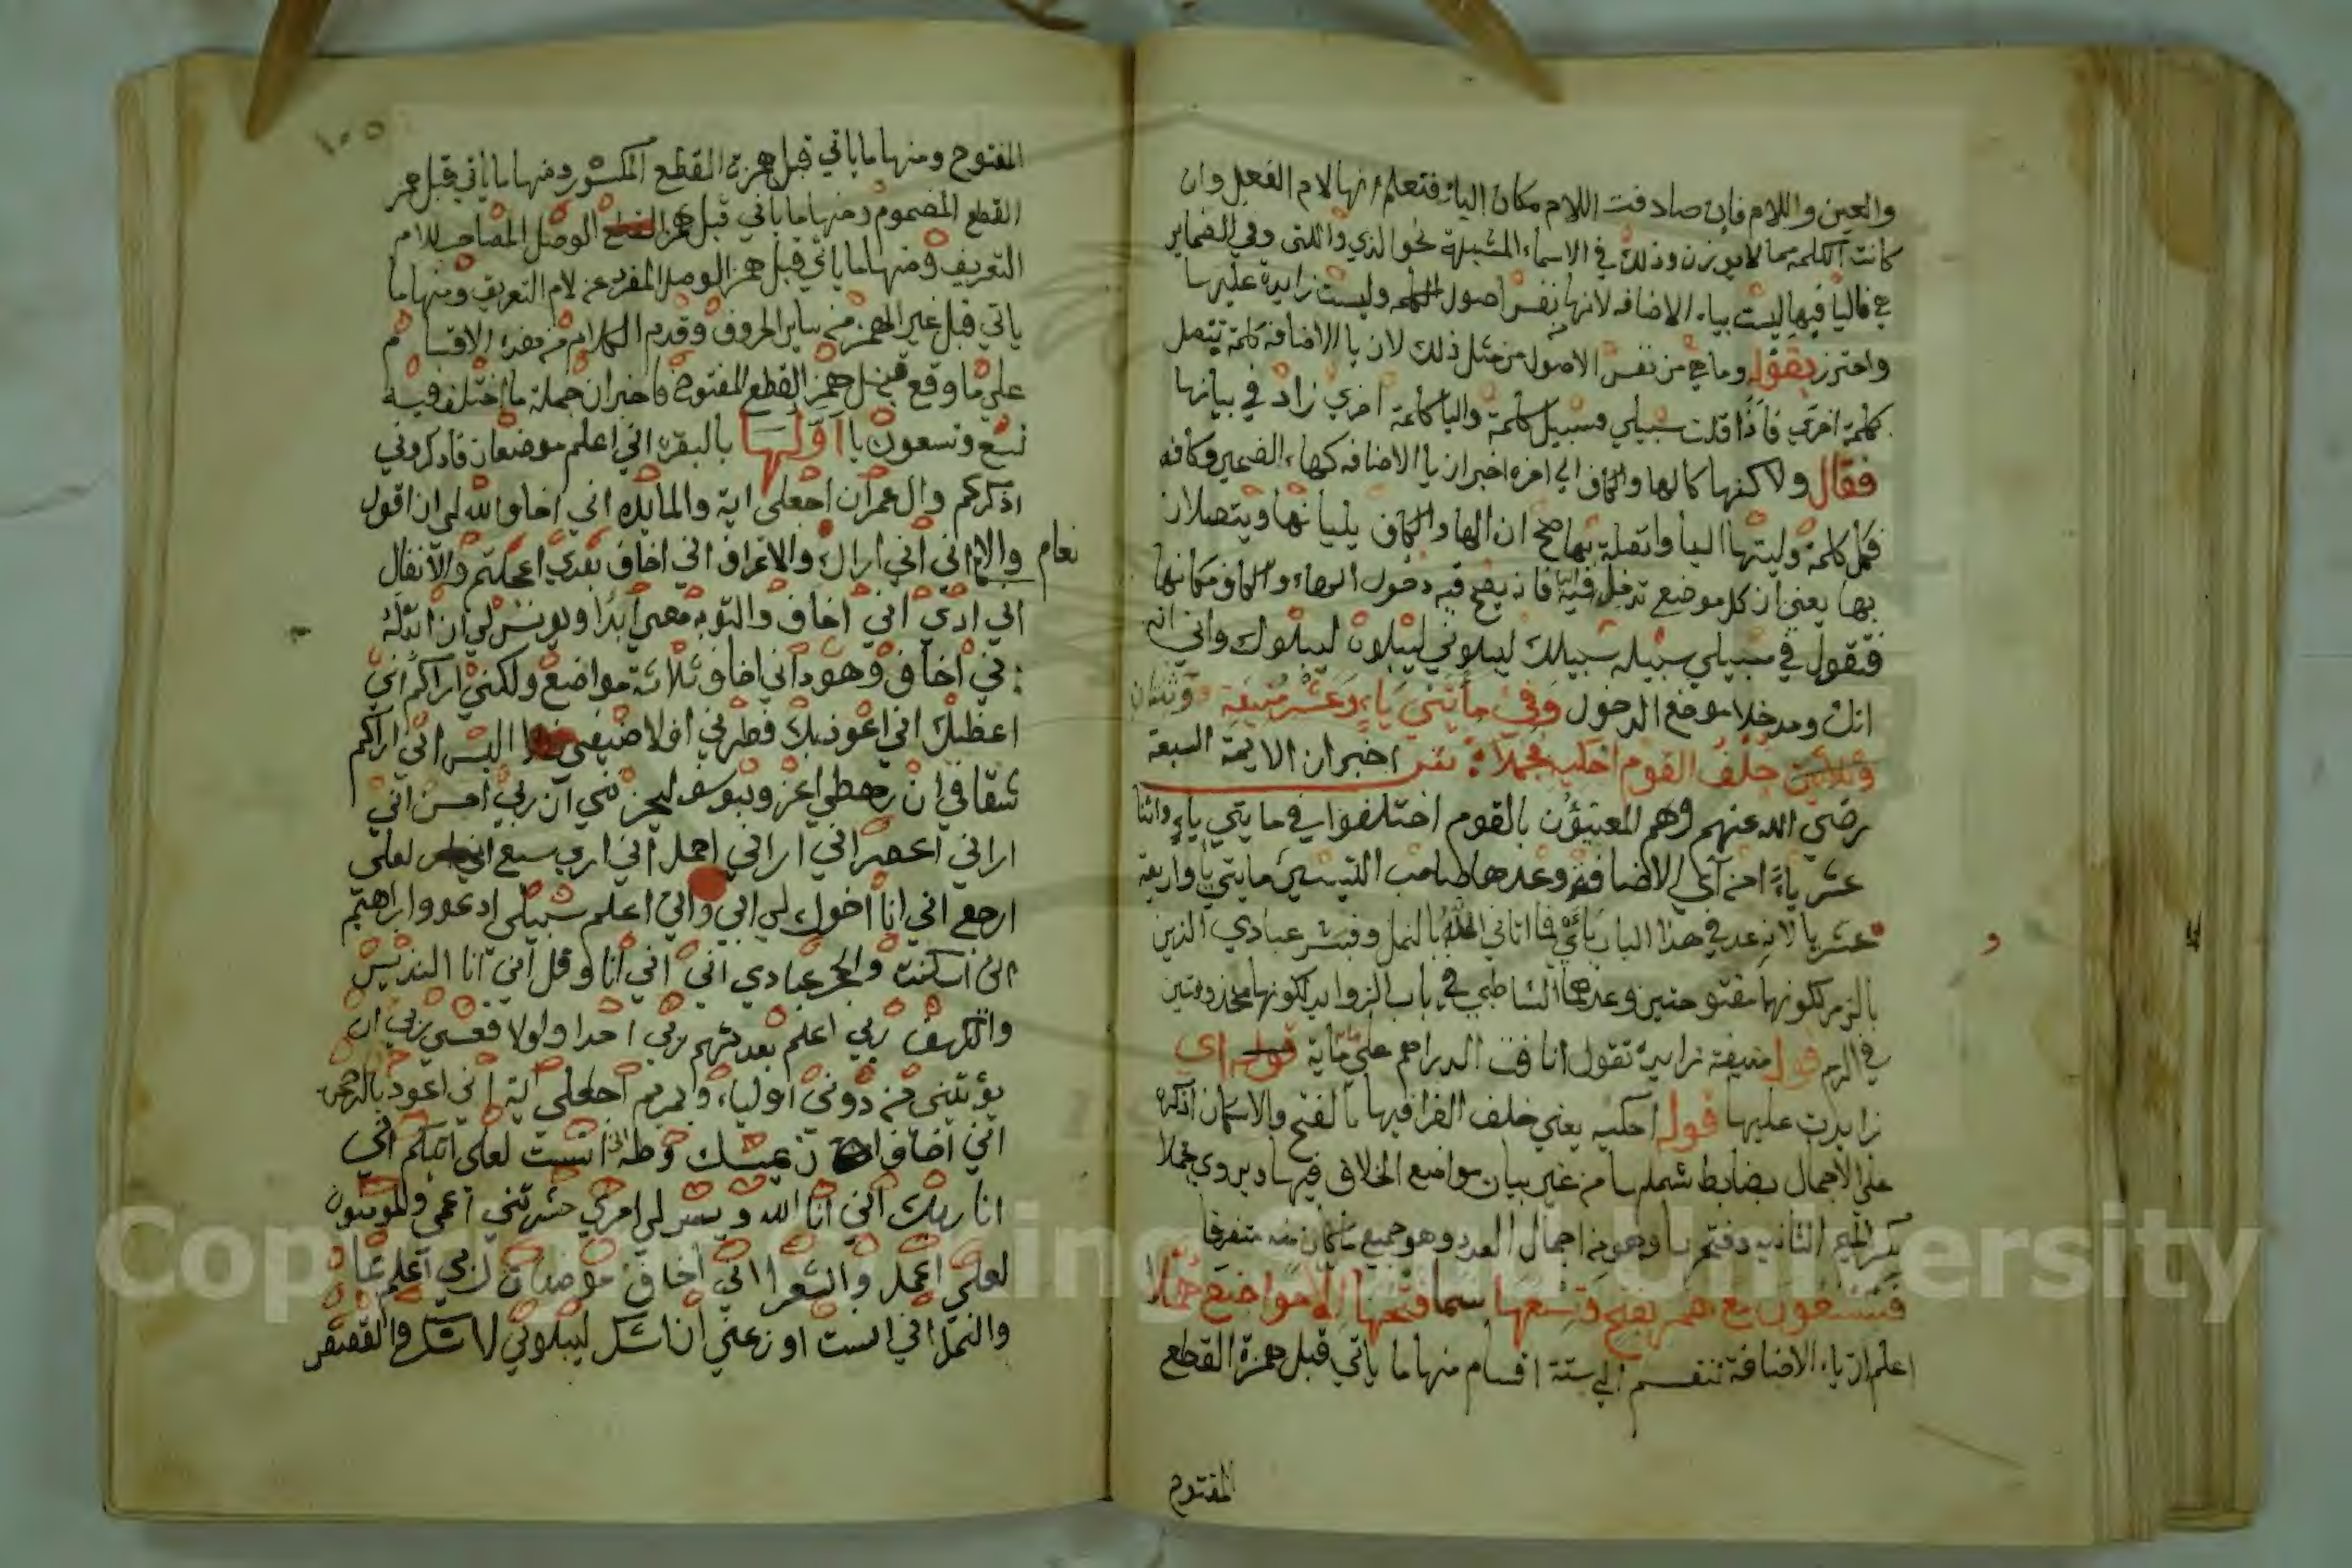 والعين واللام فان صادفت اللام مكان اليا فتعلم انها لام الفعل وان
كانت الكلمة مما لا يوزن وذلك في الاسماء المشبهة نحو الذي والتي وفي الضماير
هي فاليا فيها ليست بياء الاضافه لانها نفس اصول الكلمه وليست زايدة عليها
واحترز بقوله وما هي من نفس الاصول من مثل ذلك لان يا الاضافة كلمة تتصل
كلمة اخرى فاذا قلت سبيلي فسبيل كلمة واليا كلمة اخري زاد في بيانها
فقال ولاكنها كالها والكاف الي اخره اخبر ان يا الاضافه كهاء الضمير وكافه
فكل كلمة وليتها اليا واتصلت بها صح ان الها والكاف يليانها ويتصلان
بها يعني ان كل موضع تدخل فيه فانه يصح فيه دخول الهاء والكاف مكانها
فتقول في سبيلي سبيله سبيلك ليبلوني ليبلوه ليبلوك واني انه
انك ومدخلا موضع الدخول وفي مأتي ياء وعشر منيفة وثنتان
وثلاثين خلف القوم احكيه مجملا اخبر ان الايمة السبعة
رضي الله عنهم وهم المعنيون بالقوم اختلفوا في مايتي ياء واثنا
عشر ياء من آي الاضافة وعدها صاحب التيسير مايتي يا واربعة
عشر يا لانه عد في هذا الباب يائي فما اتاني الله بالنمل وفبشر عبادي الذين
بالزمر لكونهما مفتوحتين وعدهما الشاطبي في باب الزوايد لكونهما محذوفتين
في الرسم قوله منيفة زايدة تقول انافت الدراهم على ماية قوله اي
زايدت عليها قوله احكيه يعني خلف القرا فيها بالفتح والاسكان اذكره
على الاجمال بضابط شملها من غير بيان مواضع الخلاف فيها ويروي مجملا
بكسر الميم الثانيه وفتحها وهو من اجمال العدد وهو جميع ما كان منه متفرقا
فتسعون مع همز بفتح وتسعها سما فتحها الا مواضع هملا
اعلم ان ياء الاضافة تنقسم الي ستة اقسام منها ما ياتي قبل همزة القطع
المفتوح
١٠٥
المفتوح ومنها ما ياتي قبل همزة القطع المكسور ومنها ما ياتي قبل همز
القطع المضموم ومنها ما ياتي قبل همز الوصل المصاحب للام
التعريف ومنها ما ياتي قبل همز الوصل المفرد عن لام التعريف ومنها ما
ياتي قبل غير الهمز من ساير الحروف وقدم الكلام من هذه الاقسام
على ما وقع قبل همز القطع المفتوح فاخبر ان جملة ما اختلف فيه
تسع وتسعون يا اولها بالبقره اني اعلم موضعان فاذكروني
اذكركم وال عمران اجعلى اية والمايده اني اخاف الله لي ان اقول
والانعام اني اني اراك والاعراف اني اخاف بعدي اعجلتم والانفال
اني اري اني اخاف والتوبه معي ابدا ويونس لي ان ابدله
اني اخاف وهود اني اخاف ثلاثة مواضع ولكني اراكم اني
اعظك اني اعوذ بك فطرني افلا ضيفي اليس اني اراكم
شقاقي ان رهطي اعز وبيوسف ليحزنني ان ربي احسن اني
اراني اعصر اني اراني احمل اني اري سبع لعلي
ارجع اني انا اخوك لي ابي واني اعلم سبيلي ادعوا وابراهيم
اني اسكنت والحجر عبادي اني اني انا وقل اني انا النذير
والكهف ربي اعلم بعدتهم بربي احدا ولولا فعسى ربي ان
يؤتيني من دوني اولياء ومريم اجعلى اية اني اعوذ بالرحمن
اني اخاف ان يمسك وطه اني انست لعلى اتيكم اني
انا ربك انني انا الله ويسر لي امري حشرتني اعمى والمؤمنون
لعلي اعمل والشعرا اني اخاف موضعان ربي اعلم بما
والنمل اني انست اوزعني ان اشكر ليبلوني ااشكر والقصص